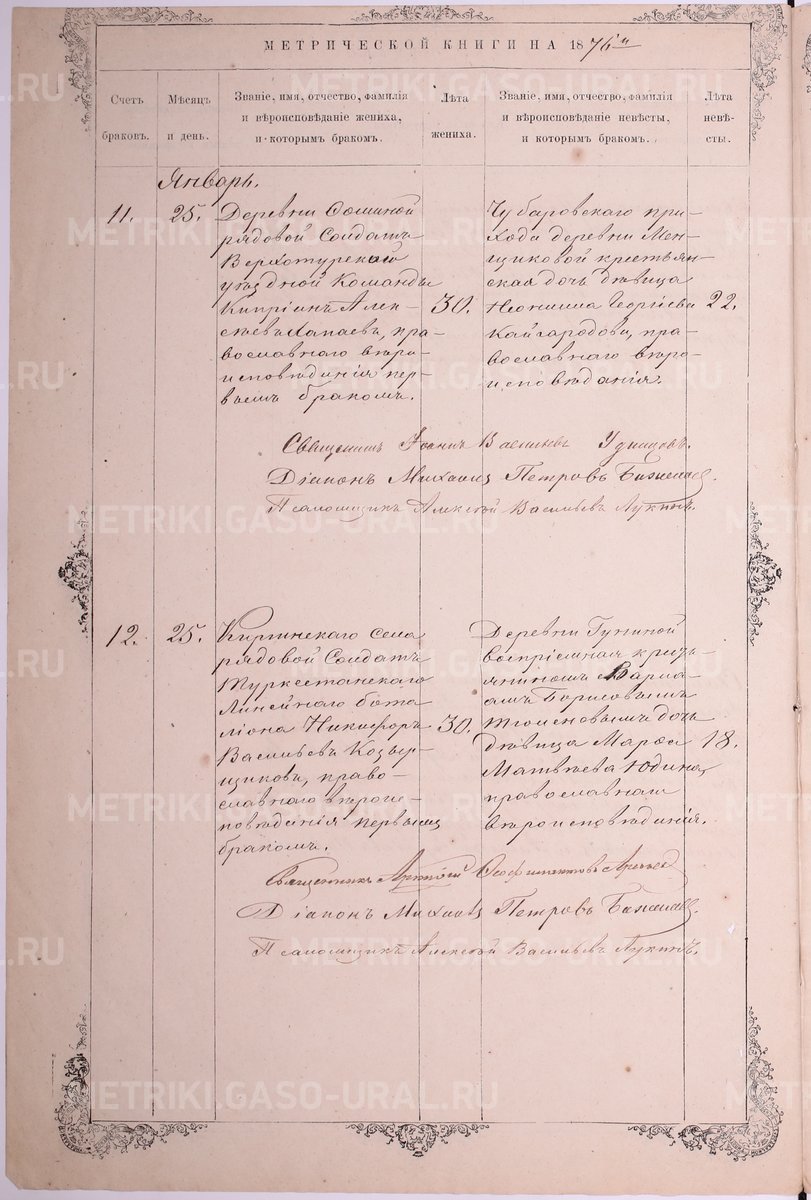 МЕТРИЧЕСКОЙ КНИГИ НА 1876 й
Счетъ браковъ.
Мѣсяцъ и день.
Званіе, имя, отчество, фамилія и вѣроисповѣданіе жениха, и которымъ бракомъ.
Лѣта жениха.
Званіе, имя, отчество, фамилія и вѣроисповѣданіе невѣсты, и которымъ бракомъ.
Лѣта невѣсты.
Январь.
11.
25.
Деревни Ѳоминой
рядовой Солдатъ
Верхотурской
уѣздной Команды
Кипріанъ Алек-
сѣевъ Хапаевъ, пра-
вославнаго вѣро-
исповѣданія пер-
вымъ бракомъ.
30.
Чубаровскаго при-
хода деревни Мен-
щиковой крестьян-
ская дочь дѣвица
Неонила Георгіева
Кайгародова, пра-
вославнаго вѣро-
исповѣданія.
22.
Священникъ Іоаннъ Васильевъ Удинцовъ.
Діаконъ Михаилъ Петровъ
Псаломщикъ Алексѣй Васильевъ Лукинъ.
12.
25.
Киргинскаго села
рядовой Солдатъ
Туркестанскаго
Линейнаго бата
ліона Никифоръ
Васильевъ Козыр-
щиковъ, право-
славнаго вѣроис-
повѣданія первымъ
бракомъ.
30.
Деревни Гуниной
воспріемная кресть-
яниномъ
Борисовымъ
дочь
дѣвица Марѳа
Матвѣева Юдина,
православнаго
вѣроисповѣданія.
18.
Священникъ
Діаконъ Михаилъ Петровъ
Псаломщикъ Алексѣй Васильевъ Лукинъ.
METRIKI.GASO-URAL.RU